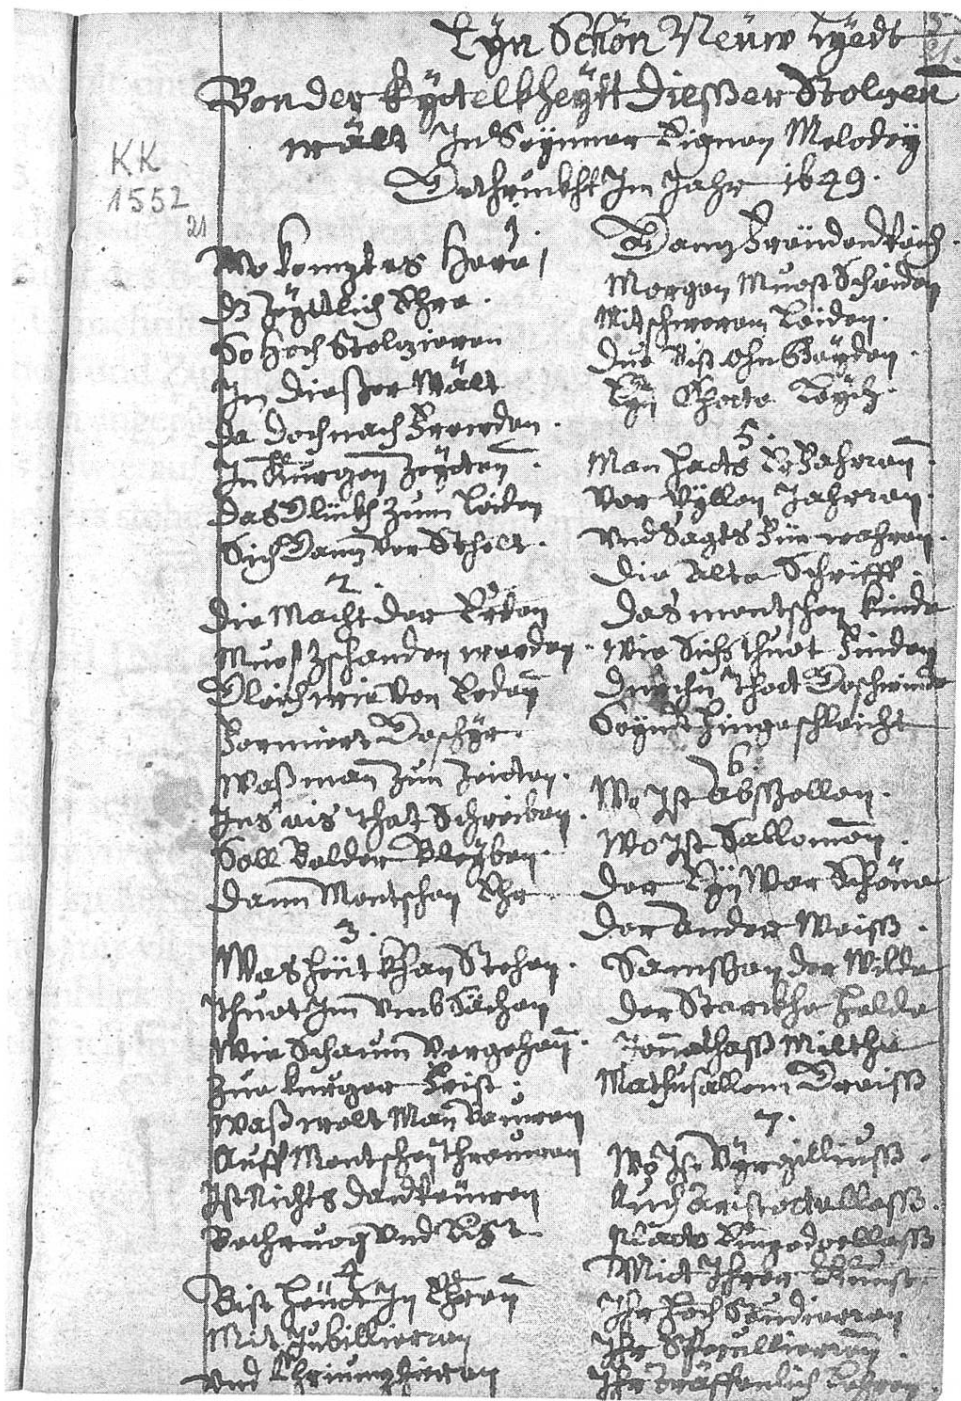 Eÿn Schön Neüw Lÿedt
Von der Eÿtelkheÿtt Diesser Stolzen
wält In Seÿnner Eignen Melodeÿ
Gethruckht Im Jahr 1649.
KK
1552
21
1.
Wo kompt es Here,
Dz Zeÿttlich Ehre.
So Hoch Stolzieren
In Diesser Wält
Da Doch nach Frewden.
In Kurtzen Zeÿtten.
Das Glückh zum Leiden
Sich Dann verstelt.
2.
Die Macht der Erden
Muoss Zschanden werden.
Gleich wie von Erden
Formiert Geschÿr.
Wass man zun Zeiten.
Ins eis that Schreiben.
Soll Belder Bleÿben.
Dann Mentschen Ehr
3.
Was Heüt khan Stehen.
Thuot Im umb Sächen
Wie Schaum vergehen.
Zue kurtzer Frist.
Wass wolt Man Bauwen
Auff Mentschen Thrauwen
Ist Nichts Dan Reüwen
Bethruog Und List
4
Bist Heüt In Ehren
Mit Jubillieren
Und
Ganz Freüden Reich.
Morgen Muost Scheiden
Mit schwerem Leiden.
Due Bist ohn
Eÿn Thote Leÿch.
5.
Man hats Erfahren.
Vor Vÿllen Jahren.
Und Sagts Für wahren.
Die Alte Schrifft.
Das mentschen kinde
Wie Sichs thuot Finden
Durch Thodt Geschwinde
Seÿndt Hingeschleicht
6.
Wo Ist Abssollon.
Wo Ist Sallomon.
Der Eÿn War Schöne
Der Ander Weiss.
Samsson der Wilde
Der Starckhe Helde
Jonnathass Milthe
Mathusallem Greiss
7.
Wo Ist Vÿrgilliuss.
Auch Aristottelless.
Plato
Mit Ihrer Kunst.
Ihr Hoch Studieren
Ihr Specullieren.
Ihr Träffenlich Lehren.